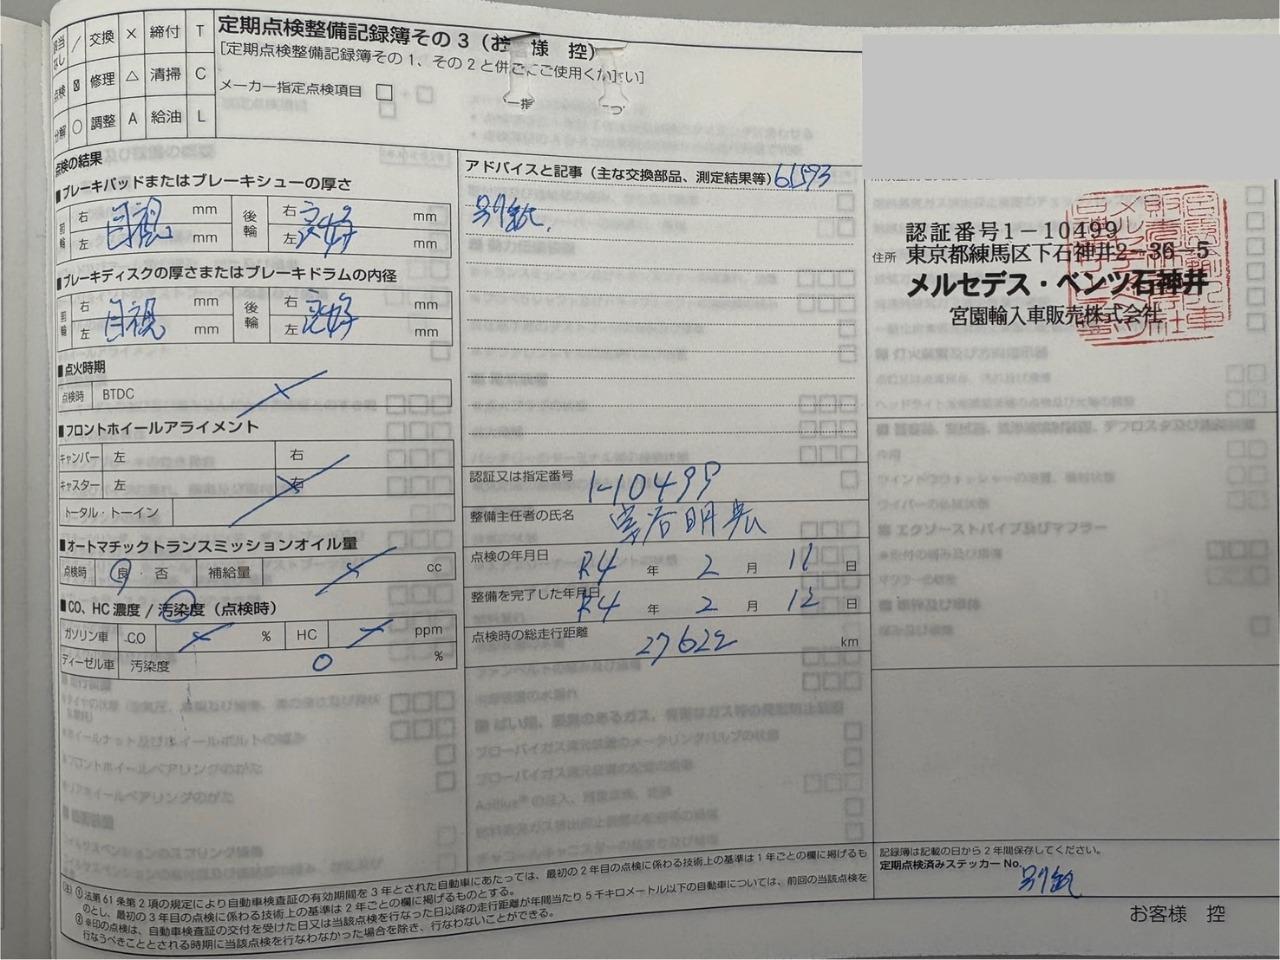 該当なし / 交換 × 締付 T
点検 修理 △ 清掃 C
分解 ○ 調整 A 給油 L
定期点検整備記録簿その3(お客様 控)
[定期点検整備記録簿その1、その2と併せてご使用ください]
メーカー指定点検項目 □
点検の結果
■ブレーキパッドまたはブレーキシューの厚さ
前輪 右 mm 後輪 右 mm
左 mm 左 mm
目視 良好
■ブレーキディスクの厚さまたはブレーキドラムの内径
前輪 右 mm 後輪 右 mm
左 mm 左 mm
目視 良好
■点火時期
点検時 BTDC
■フロントホイールアライメント
キャンバー 左 右
キャスター 左 右
トータル・トーイン
■オートマチックトランスミッションオイル量
点検時 良・否 補給量 cc
■CO、HC濃度/汚染度(点検時)
ガソリン車 CO % HC ppm
ディーゼル車 汚染度 0 %
アドバイスと記事(主な交換部品、測定結果等)
別紙.
認証又は指定番号 1-10499
整備主任者の氏名
点検の年月日 R4 年 2 月 11 日
整備を完了した年月日 R4 年 2 月 12 日
点検時の総走行距離 27622 km
認証番号1-10499
住所 東京都練馬区下石神井2-36-5
メルセデス・ベンツ石神井
宮園輸入車販売株式会社
記録簿は記載の日から2年間保存してください。
定期点検済みステッカーNo.
別紙
お客様 控
(注)①法第61条第2項の規定により自動車検査証の有効期間を3年とされた自動車にあたっては、最初の2年目の点検に係わる技術上の基準は1年ごとの欄に掲げるも
のとし、最初の3年目の点検に係わる技術上の基準は2年ごとの欄に掲げるものとする。
②※印の点検は、自動車検査証の交付を受けた日又は当該点検を行なった日以降の走行距離が年間当たり5千キロメートル以下の自動車については、前回の当該点検を
行なうべきこととされる時期に当該点検を行なわなかった場合を除き、行なわないことができる。